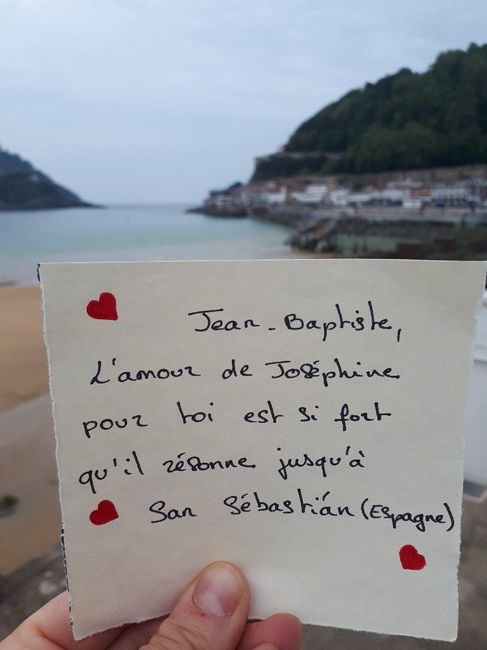 Jean-Baptiste,
L'amour de Joséphine
pour toi est si fort
qu'il résonne jusqu'à
San Sébastián (Espagne)